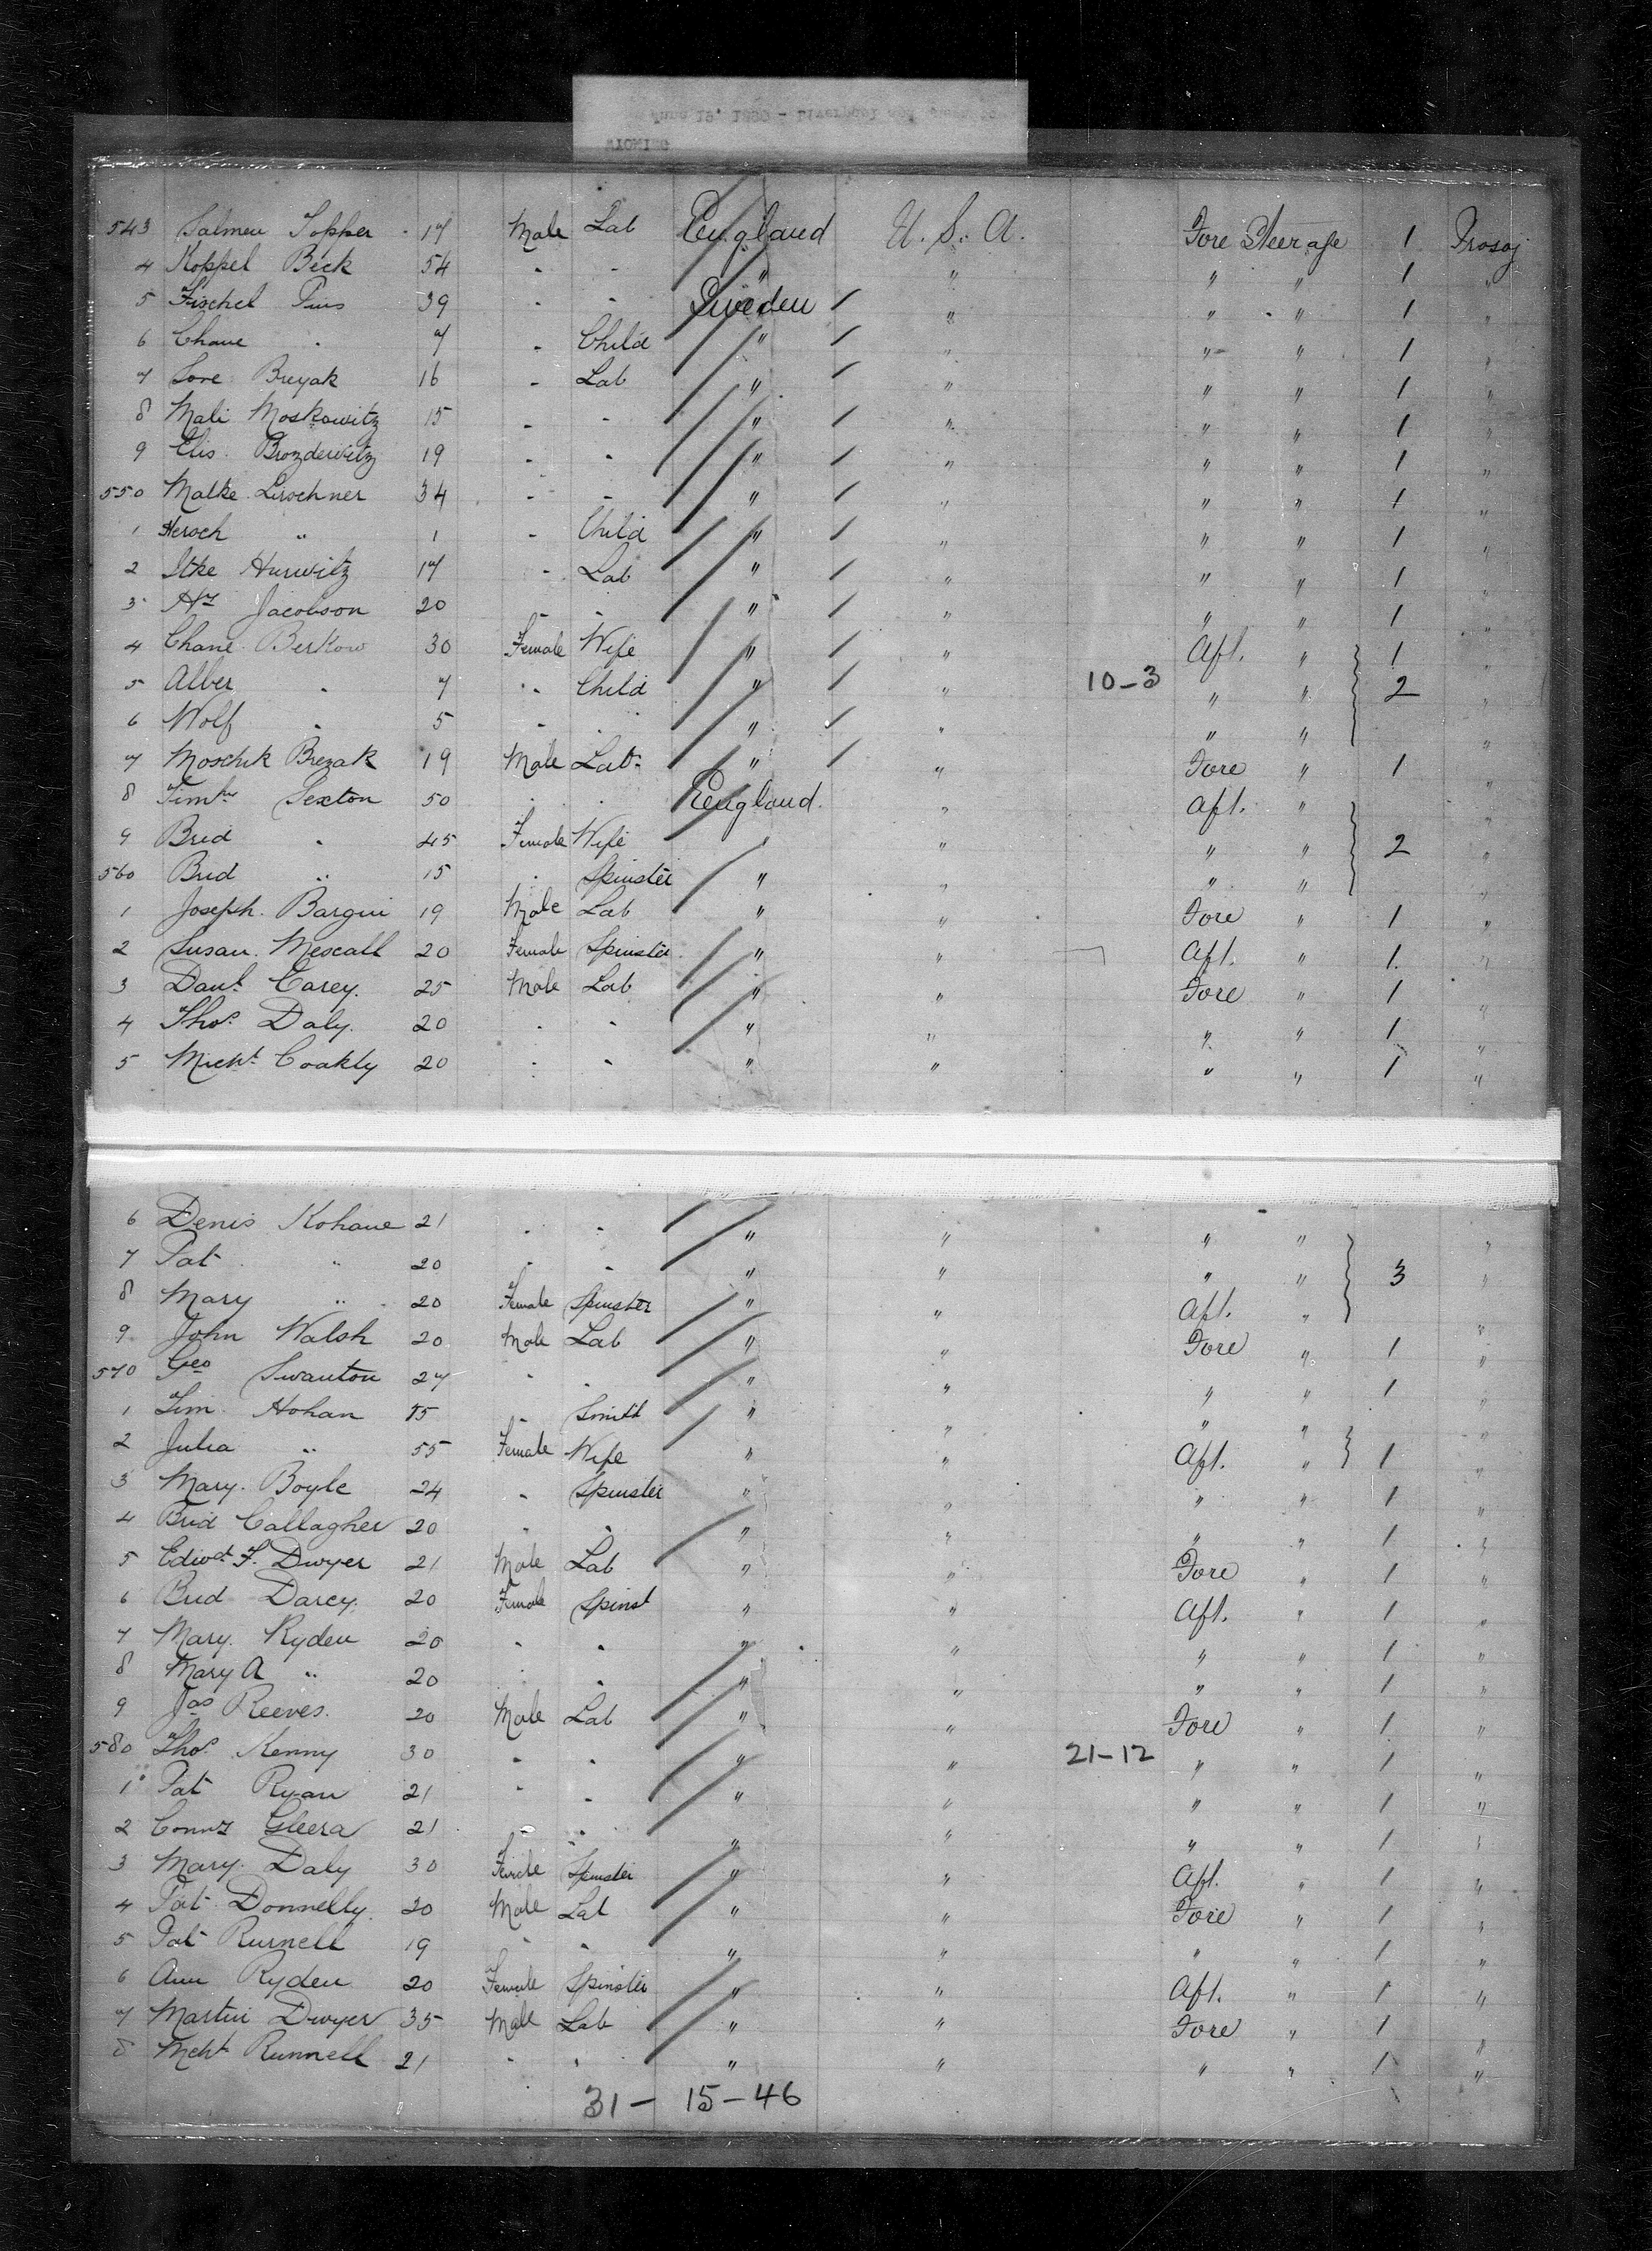 June 19, 1890 - Liverpool and
WYOMING
543 Salmen Topper 17 Male Lab England U. S. A. Fore Steerage 1
4 Koppel Beck 54 " " " " " " 1 "
5 Fischel Pins 39 " " Sweden / " " " 1 "
6 Chane " 7 " Child " / " " " 1 "
7 Sore Breyak 16 " Lab " / " " " 1 "
8 Mali Moskowitz 15 " " " / " " " 1 "
9 Elis Brozdewitz 19 " " " / " " " 1 "
550 Malke Lirochner 34 " " " / " " " 1 "
1 Hersch " 1 " Child " / " " " 1 "
2 Itke Hurwitz 17 " Lab " / " " " 1 "
3 Hy Jacobson 20 " " " / " " " 1 "
4 Chane Berkow 30 Female Wife " / " Aft. " 1 "
5 Alber " 7 " Child " / " 10-3 " " 2 "
6 Wolf " 5 " " " / " " " "
7 Moschk Brezak 19 Male Lab " / " Fore " 1 "
8 Timhy Sexton 50 " " England " Aft. " "
9 Brid " 45 Female Wife " " " " 2 "
560 Brid " 15 " Spinster " " " " "
1 Joseph Bargui 19 Male Lab " " Fore " 1 "
2 Susan Mescall 20 Female Spinster " " Aft. " 1 "
3 Danl Carey 25 Male Lab " " Fore " 1 "
4 Thos Daly 20 " " " " " " 1 "
5 Michl Coakly 20 " " " " " " 1 "
6 Denis Kohane 21 " " " " " " "
7 Pat " 20 " " " " " " 3 "
8 Mary " 20 Female Spinster " " Aft. " "
9 John Walsh 20 Male Lab " " Fore " 1 "
570 Geo Swanton 27 " " " " " " 1 "
1 Tim Hohan 55 " Smith " " " " "
2 Julia " 55 Female Wife " " Aft. " 1 "
3 Mary Boyle 24 " Spinster " " " " 1 "
4 Brid Gallagher 20 " " " " " " 1 "
5 Edwd F. Dwyer 21 Male Lab " " Fore " 1 "
6 Brid Darcy 20 Female Spinst " " Aft. " 1 "
7 Mary Ryden 20 " " " " " " 1 "
8 Mary A " 20 " " " " " " 1 "
9 Jas Reeves 20 Male Lab " " Fore " 1 "
580 Thos Kenny 30 " " " " 21-12 " " 1 "
1 Pat Ryan 21 " " " " " " 1 "
2 Gleera 21 " " " " " " 1 "
3 Mary Daly 30 Female Spinster " " Aft. " 1 "
4 Pat Donnelly 20 Male Lab " " Fore " 1 "
5 Pat Rurnell 19 " " " " " " 1 "
6 Ann Ryden 20 Female Spinster " " Aft. " 1 "
7 Martin Dwyer 35 Male Lab " " Fore " 1 "
8 Mchl Runnell 21 " " " " " " 1 "
31 - 15 - 46